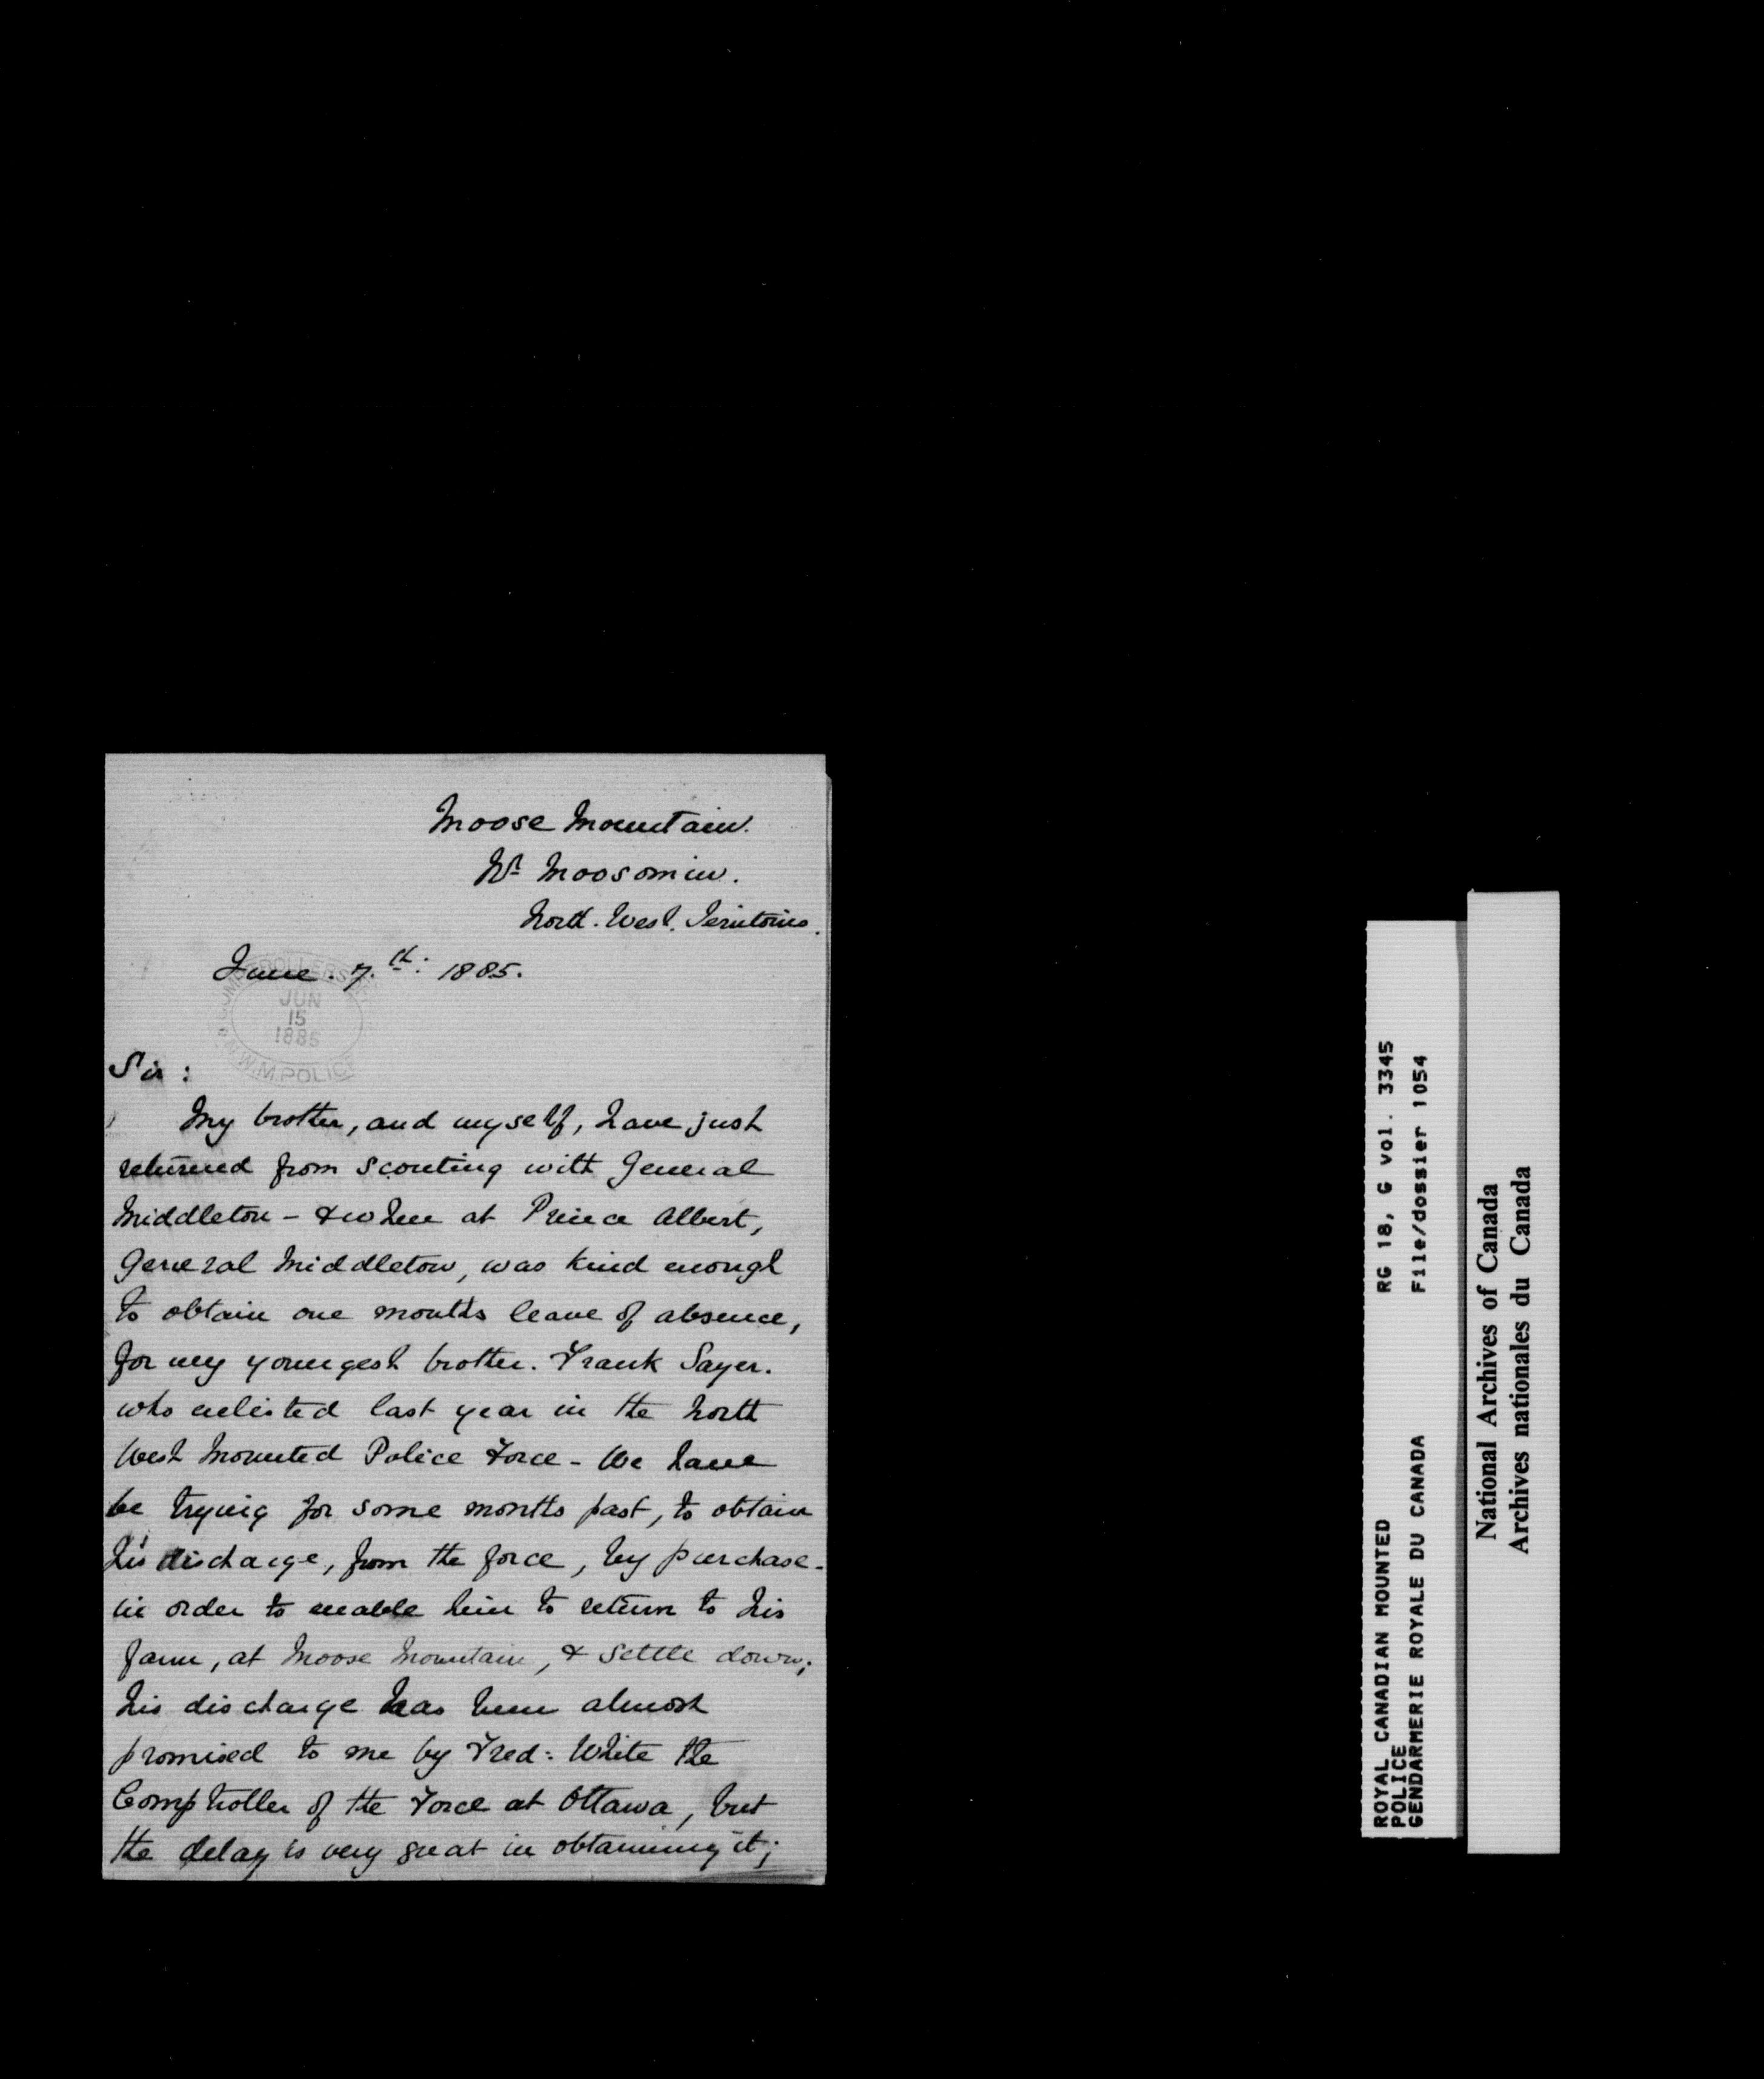 Moose Mountain.
Nr Moosomin.
North. West. Territories.
June. 7.th: 1885.
COMPTROLLERS
JUN
15
1885
N.W.M.POLICE
Sir:
My brother, and myself, have just
returned from scouting with General
Middleton - & when at Prince Albert,
General Middleton, was kind enough
to obtain one months leave of absence,
for my youngest brother. Frank Sayer.
who enlisted last year in the North
West Mounted Police Force - We have
be trying for some months past, to obtain
his discharge, from the force, by purchase -
in order to enable him to return to his
farm, at Moose Mountain, & settle down;
his discharge has been almost
promised to me by Fred: White the
Comptroller of the Force at Ottawa, but
the delay is very great in obtaining it;
ROYAL CANADIAN MOUNTED
POLICE
GENDARMERIE ROYALE DU CANADA
RG 18, G vol. 3345
File/dossier 1054
National Archives of Canada
Archives nationales du Canada